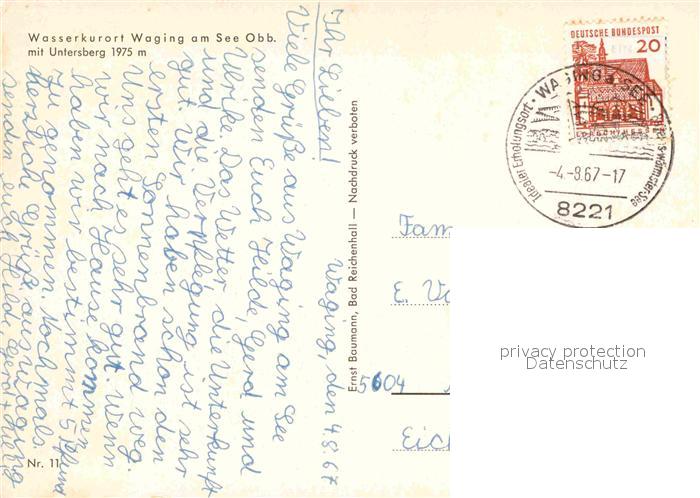 Wasserkurort Waging am See Obb.
mit Untersberg 1975 m
DEUTSCHE BUNDESPOST
20
LORSCH/HESSEN
WAGING a. SEE
Idealer Erholungsort
-4.-8.67-17
8221
Waging, den 4.8.67
Ihr Lieben!
Viele Grüße aus Waging am See
senden Euch Heilde, Gerd und
Ulrike. Das Wetter, die Unterkunft
und die Verpflegung ist sehr
gut. Wir haben schon den
ersten Sonnenbrand weg.
Uns geht es sehr gut. Wenn
wir nach Hause kommen
haben wir bestimmt 5 Pfund
zu genommen. Nochmals
herzliche Grüße aus Waging
senden euch
Ernst Baumann, Bad Reichenhall — Nachdruck verboten
Fam
E. V
5604
Eic
Nr. 11
privacy protection
Datenschutz